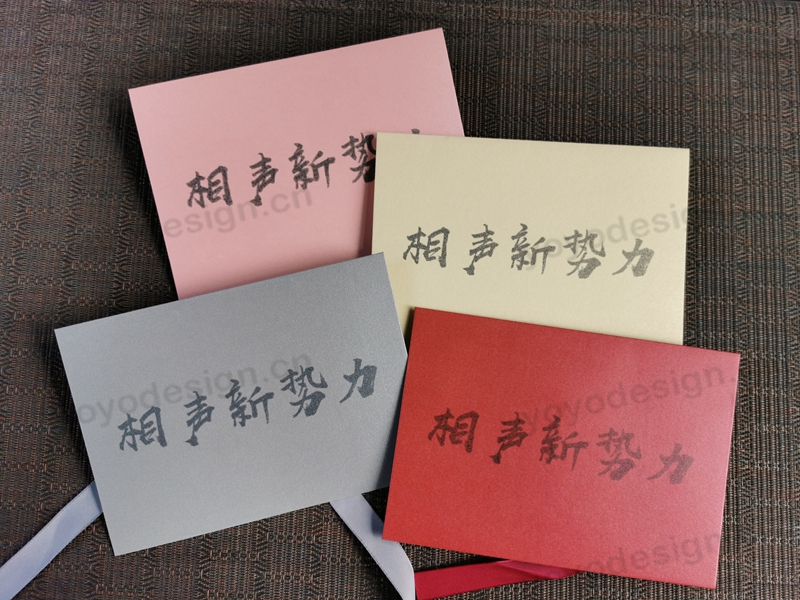 相声新势
相声新势力
相声新势力
相声新势力
design.cn
yoyodesign
yoyodesign.cn
yoyodesign.
design.